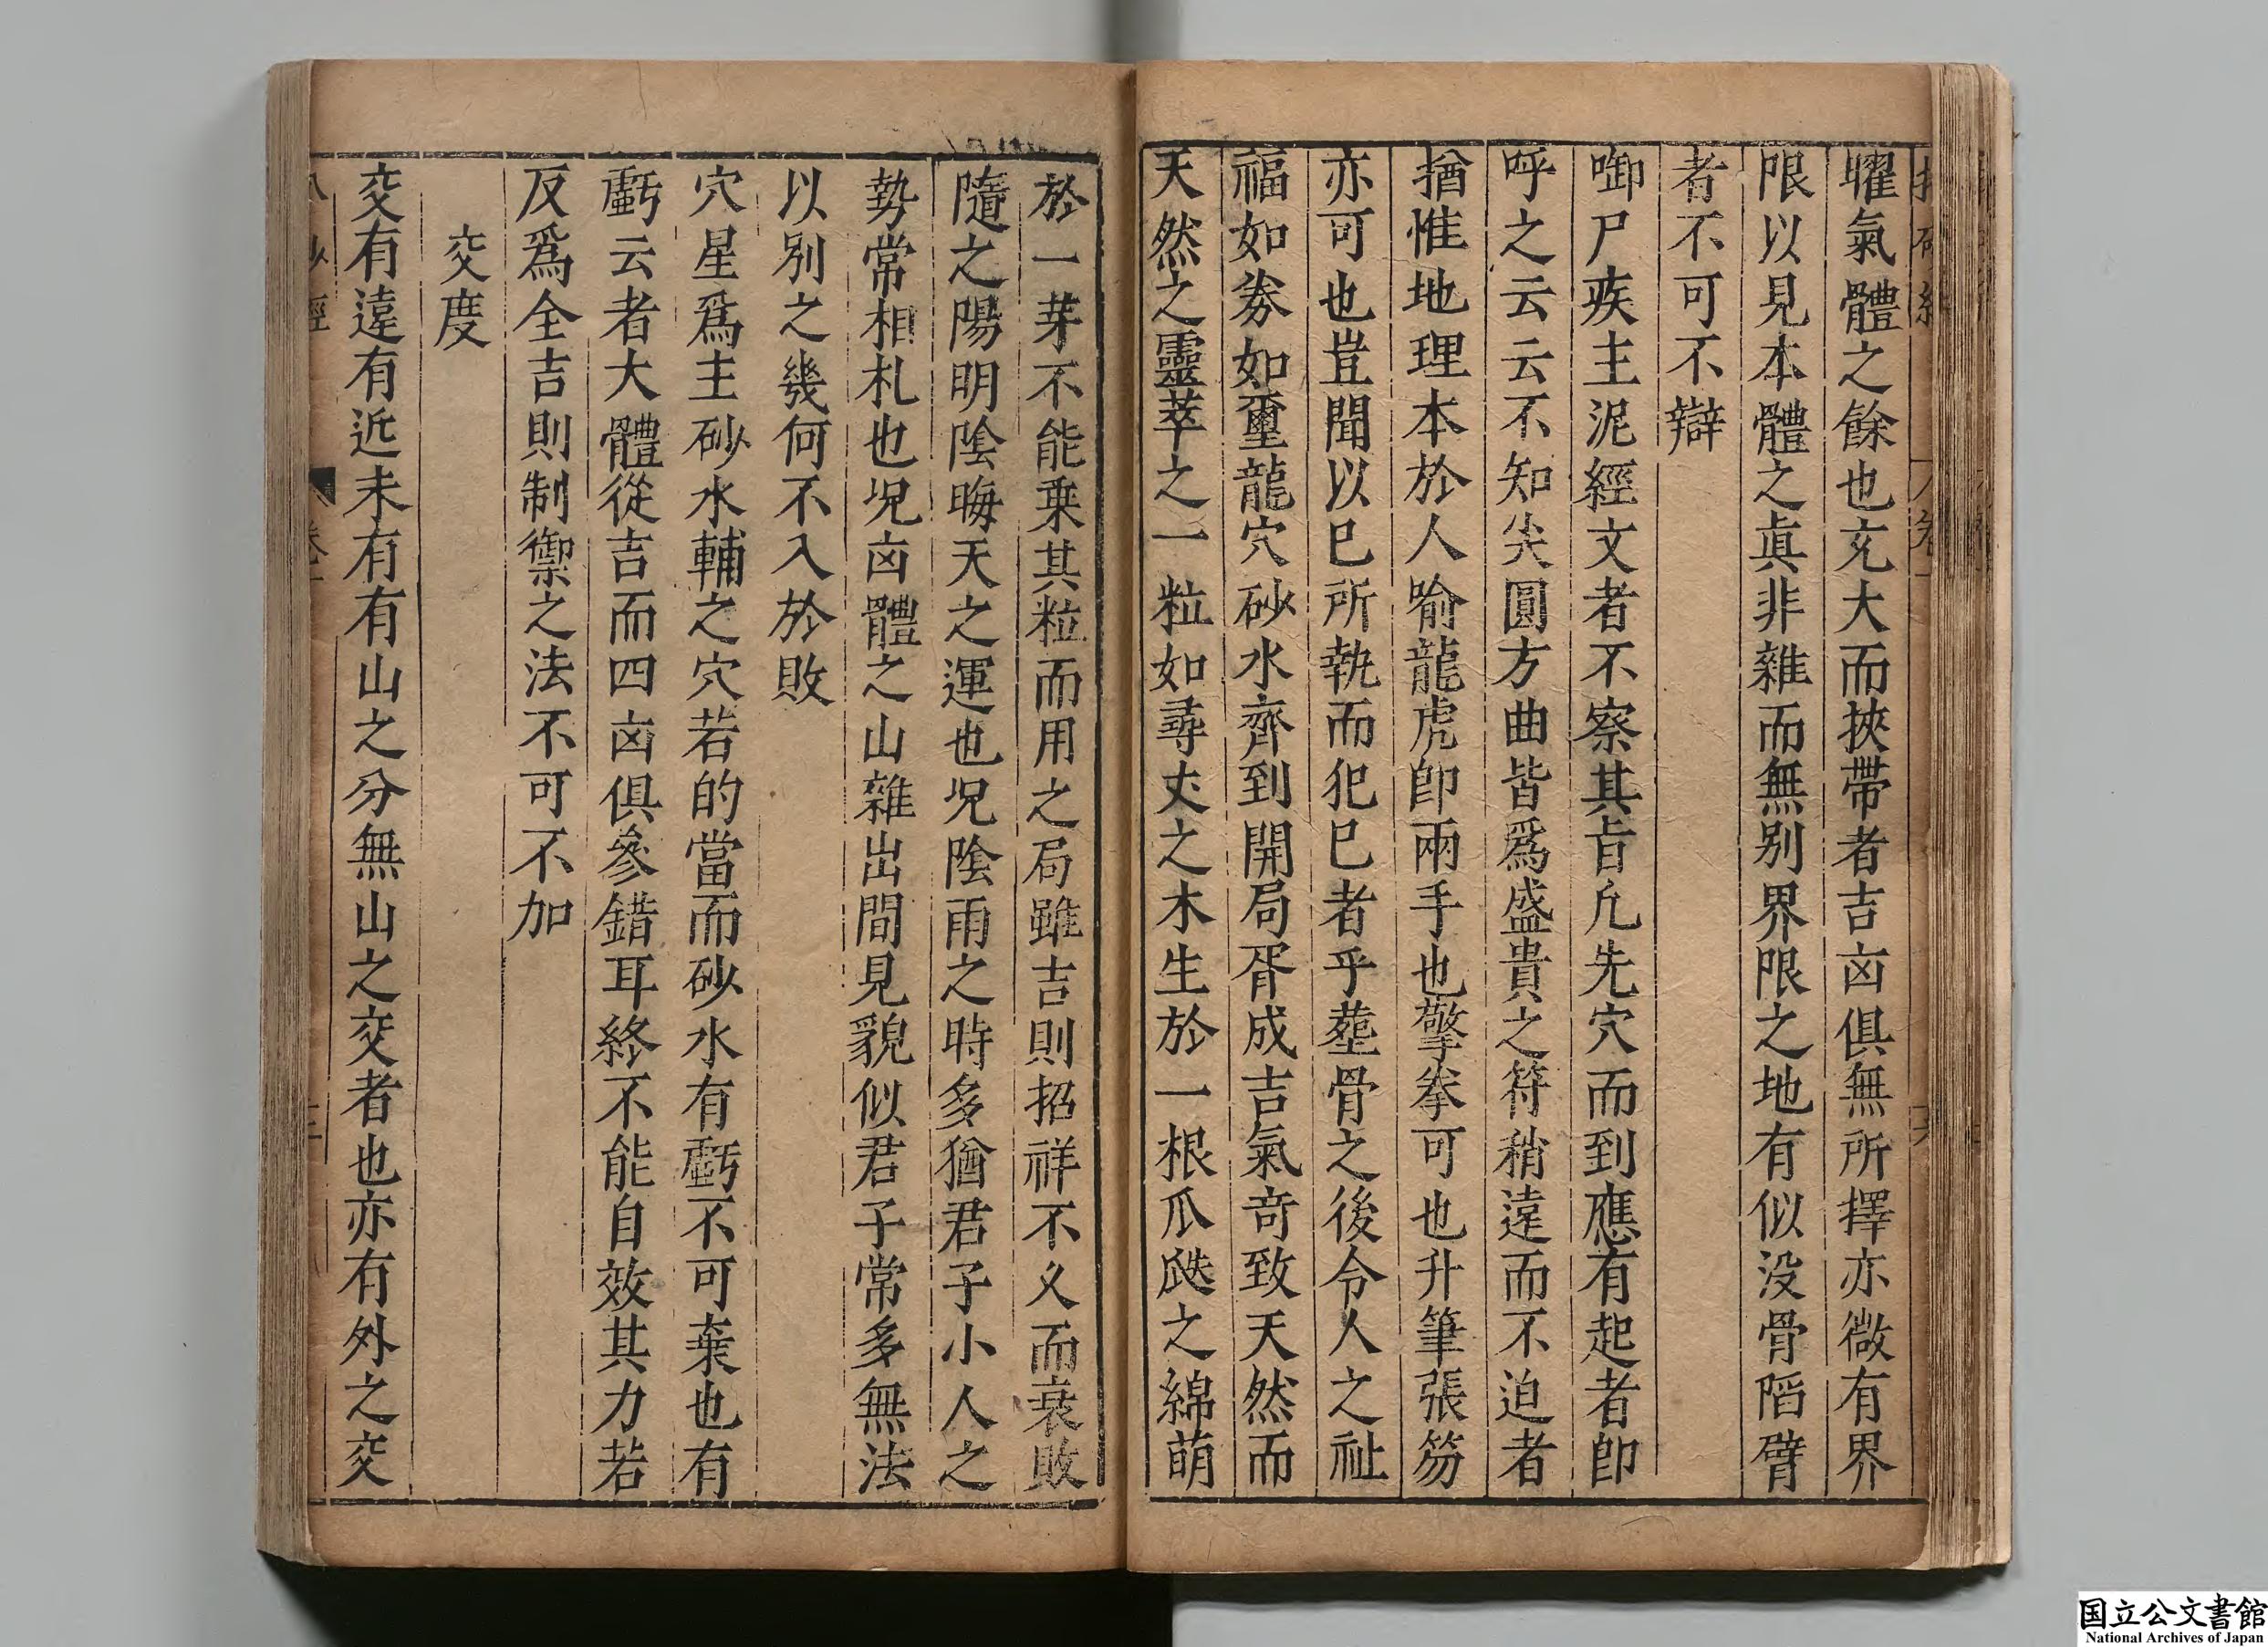 曜氣體之餘也充大而挾帶者吉凶俱無所擇亦微有界
限以見本體之眞非雜而無别界限之地有似没骨䧟臂
者不可不辯
啣尸疾主泥經文者不察其㫖凣先穴而到應有起者卽
呼之云云不知尖圓方曲皆爲盛貴之符稍遠而不迫者
猶惟地理本於人喻龍虎卽兩手也擎拳可也升筆張笏
亦可也豈聞以巳所執而犯巳者乎塟骨之後令人之祉
福如劵如璽龍穴砂水齊到開局胥成吉氣竒致天然而
天然之靈萃之一粒如尋丈之木生於一根瓜瓞之綿萌
於一芽不能乗其粒而用之局雖吉則招祥不乂而衰敗
隨之陽明陰晦天之運也况陰雨之時多猶君子小人之
勢常相札也况凶體之山雜出間見貌似君子常多無法
以别之幾何不入於敗
穴星爲主砂水輔之穴若的當而砂水有虧不可棄也有
虧云者大體從吉而四凶俱參錯耳終不能自效其力若
反爲全吉則制禦之法不可不加
交度
交有遠有近未有有山之分無山之交者也亦有外之交